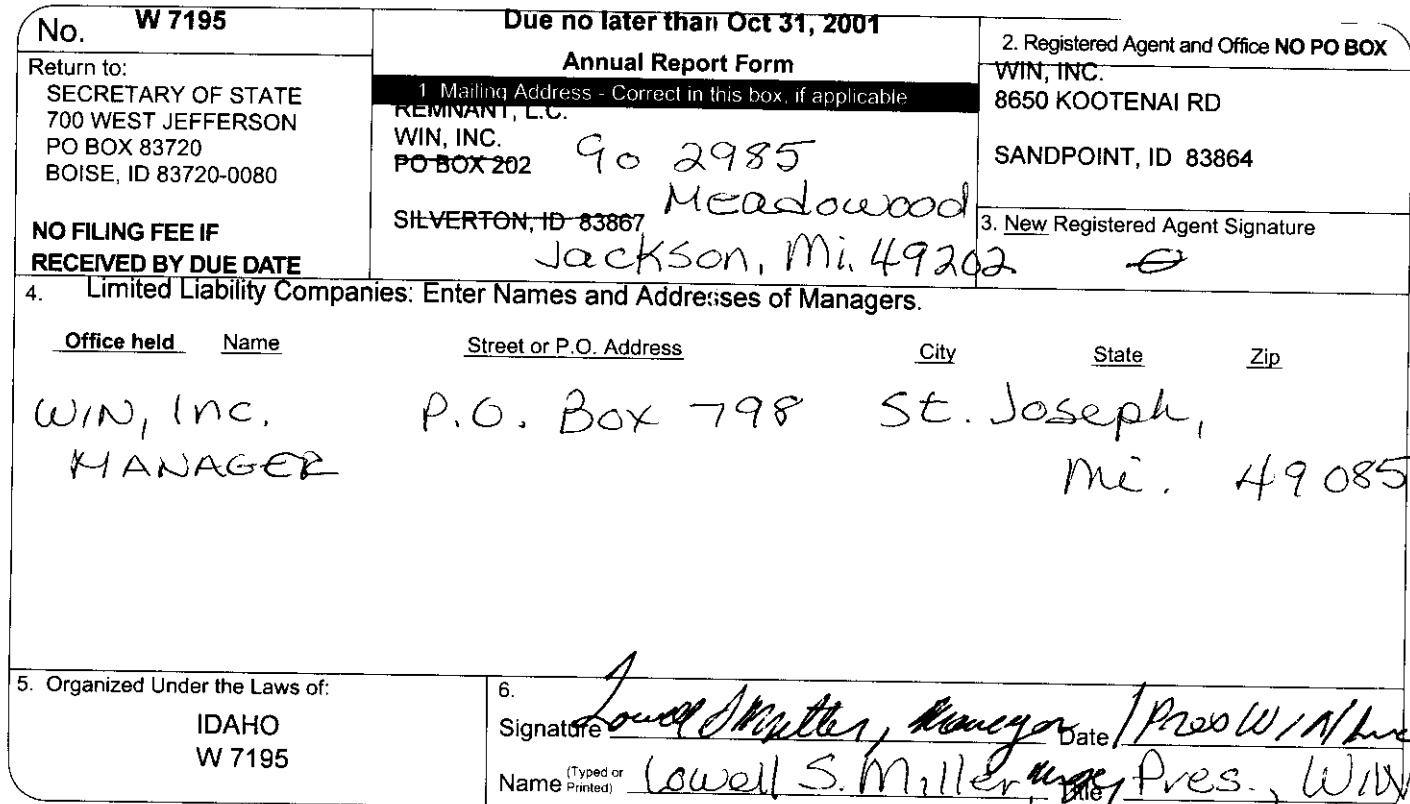 No. W 7195
Return to:
SECRETARY OF STATE
700 WEST JEFFERSON
PO BOX 83720
BOISE, ID 83720-0080
NO FILING FEE IF
RECEIVED BY DUE DATE
Due no later than Oct 31, 2001
Annual Report Form
1 Mailing Address - Correct in this box, if applicable
REMNANT, L.C.
WIN, INC.
PO BOX 202 2985
Meadowood
SILVERTON, ID 83867
Jackson, Mi. 49202
2. Registered Agent and Office NO PO BOX
WIN, INC.
8650 KOOTENAI RD
SANDPOINT, ID 83864
3. New Registered Agent Signature
4. Limited Liability Companies: Enter Names and Addresses of Managers.
Office held Name Street or P.O. Address City State Zip
WIN, Inc. P.O. Box 798 St. Joseph,
MANAGER Mi. 49085
5. Organized Under the Laws of:
IDAHO
W 7195
6.
Signature Lowell S Miller, Manager Date / Pres WIN Inc
Name (Typed or Printed) Lowell S. Miller, Title Pres., WIN